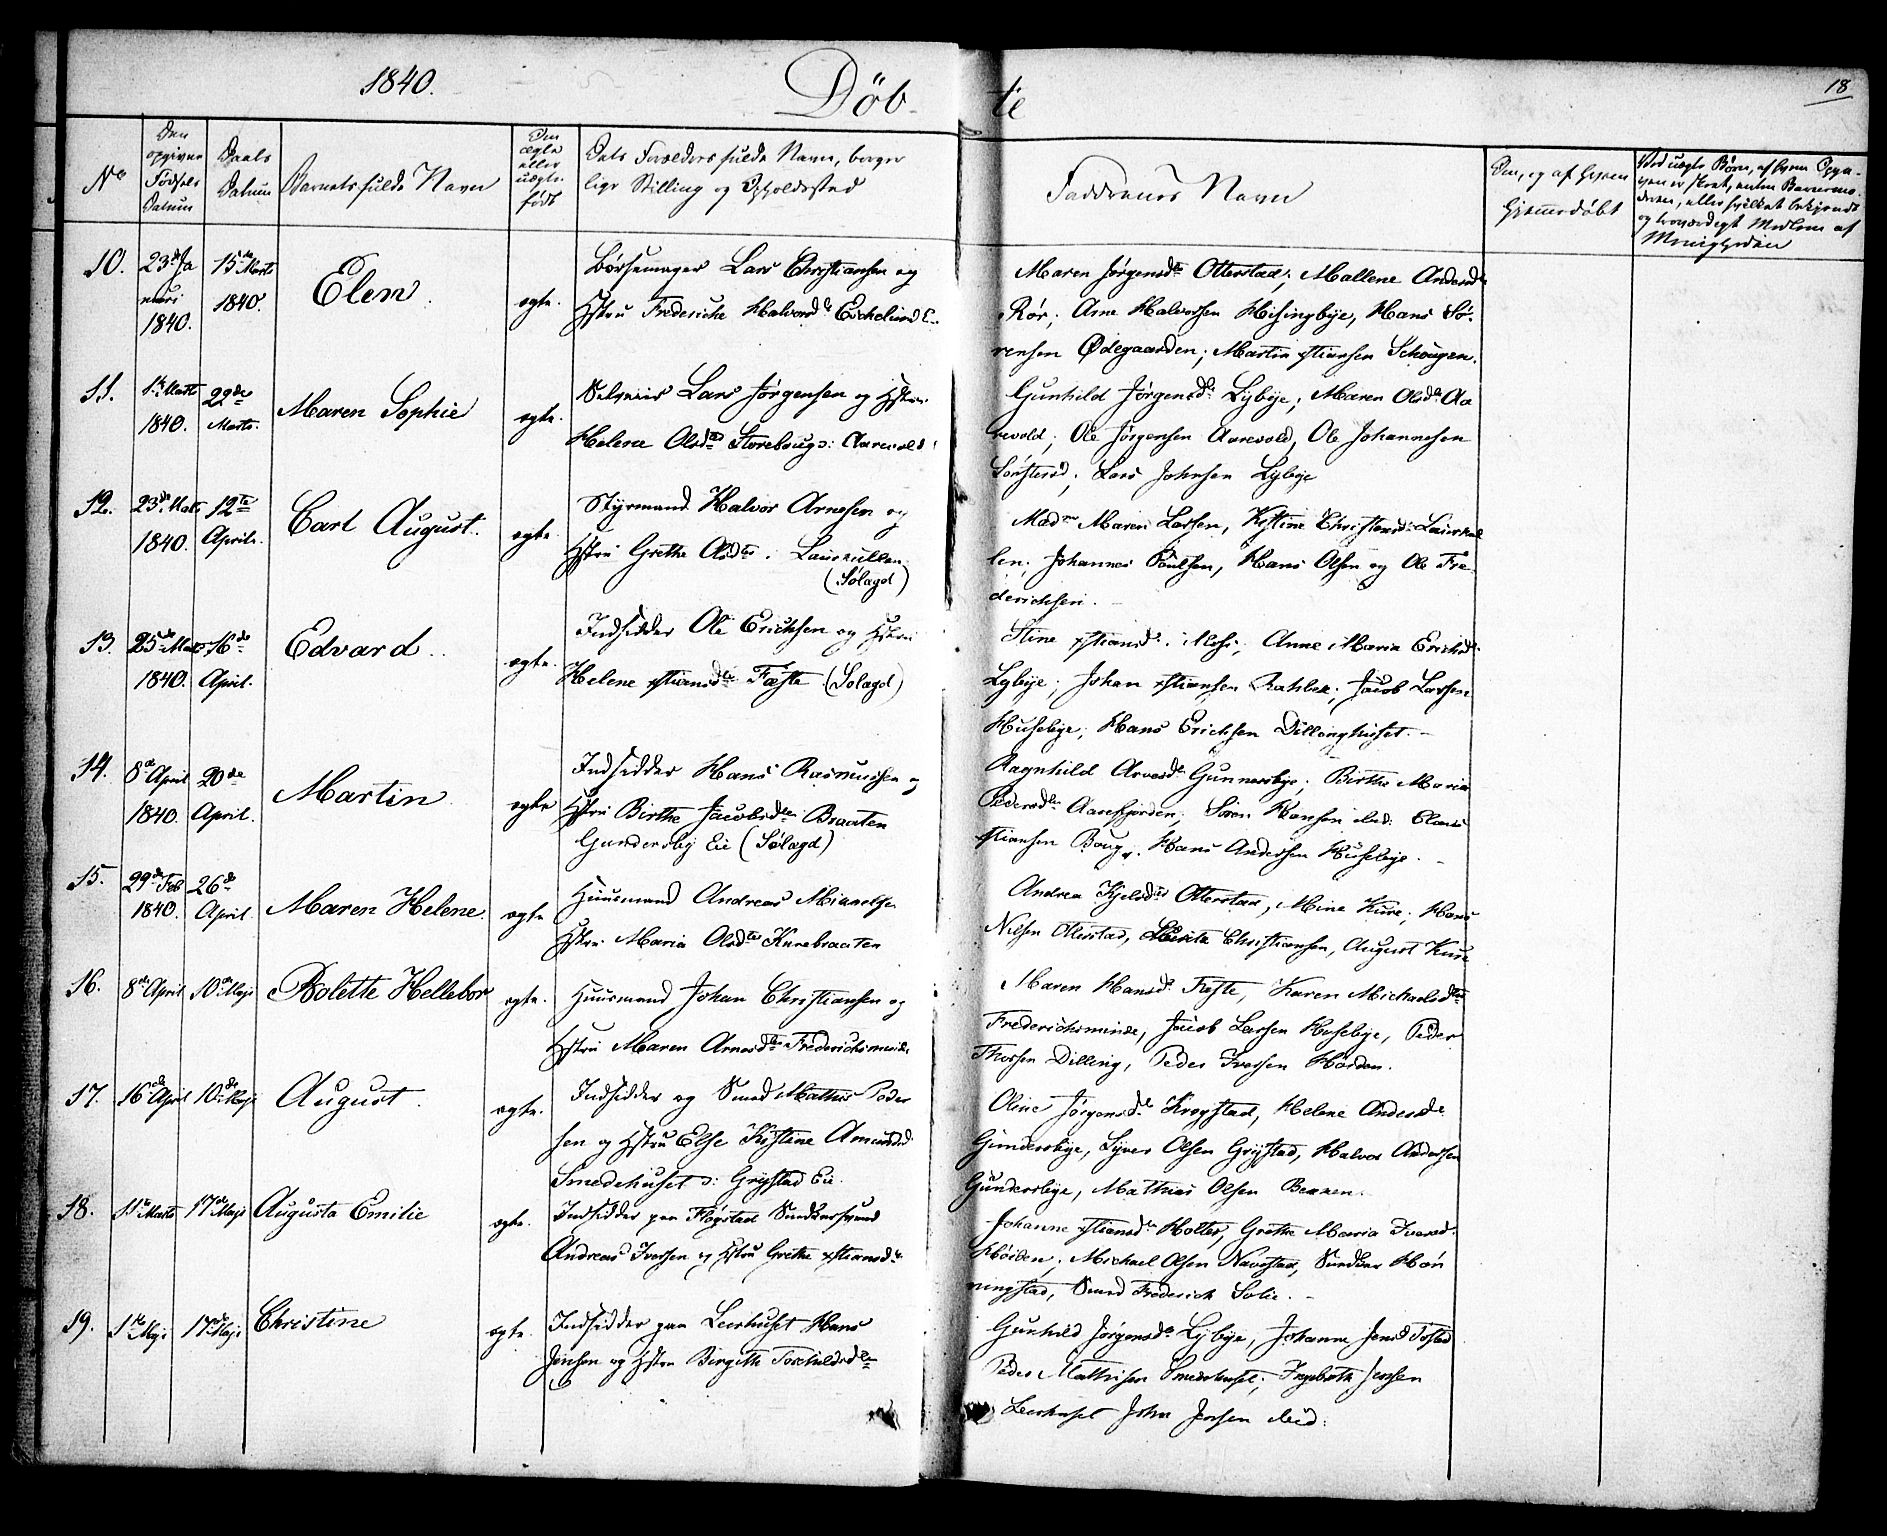 1840.
Döb-te
18
No
Den opgivne Fødsels Datum
Daabs Datum
Barnets fulde Navn
Om ægte eller uægte født
Dets Forældres fulde Navn, borger-
lige Stilling og Opholdssted
Faddernes Navn
Om, og af hvem
Hjemmedøbt
10.
23de Ja
nuari
1840.
15de Marts
1840.
Elen.
ægte.
Bøssemager Lars Christiansen og
Hstru Frederiche Halvorsd
Maren Jørgensdtr Otterstad; Mallene Andersdtr
Rør; Arne Halvorsen Hisingbye, Hans Sø-
rensen Ødegaarden; Martin xstiansen Schougen.
11.
1te Marts
1840.
22de
Marts.
Maren Sophie
ægte.
Selveier Lars Jørgensen og Hstru
Helene Olsdtr Storebaug o: Aarevold
Gunhild Jørgensd: Lybye; Maren Olsdtr Aa
revold; Ole Jørgensen Aarevold, Ole Johannesen
Lars Johnsen Lybye
12.
23de Marts
1840.
12te
April.
Carl August.
ægte.
Styrmand Halvor Arnesen og
Hstru Grethe Olsdtr.
(Sølagd)
Mad Maren Larsen, Kjstine Christensd:
len; Johannes Poulsen, Hans Olsen og Ole Fre-
derichsen.
13.
25de Marts
1840.
16de
April.
Edvard.
ægte.
Indsidder Ole Erichsen og Hstru
Helene xstiansdtr Fæste (Sølagd)
Stine xstiansd. i Moss; Anne Maria Erichsd.
Lybye; Johan xstiansen Jacob Larsen
Husebye; Hans Erichsen Dillinghuset.-
14.
8de April
1840.
20de
April.
Martin
ægte
Indsidder Hans Rasmussen og
Hstru Birthe Jacobsdtr Braaten
Gundersby Eie (Sølagd)
Ragnhild Arvesd Gunnersbye; Birthe Maria
Pedersdtr Aarefjorden; Søren Hansen ibid: Claus
xstiansen Boug og Hans Andersen Husebye.
15.
29de Feb
1840.
26de
April.
Maren Helene.
ægte
Huusmand Andreas
Hstru Maria Olsdtr Kurebraaten
Andrea Kjelsdtr Otterstad, Mine Kure; Hans
Nilsen Otterstad, Christiansen, August Kure
16.
8de April
10de Maji
Bolette Hellebor
ægte.
Huusmand Johan Christiansen og
Hstru Maren Arnesdtr Frederichsminde
Maren Hansd. Fæste, Karen Michaelsdtr
Frederichsminde, Jacob Larsen Husebye, Peder
Thorsen Dilling, Peder Iversen Høiden.
17.
16de April
10de Maji
August.
ægte.
Indsidder og Smed Mathis Peder
sen og Hstru Else Kistine Amundsd.
Smedehuset o: Grystad Eie.
Oline Jørgensdtr Krogstad, Helene Andersdtr
Gundersbye, Syver Olsen Grystad, Halvor Andersen
Gundersbye, Mathias Olsen
18.
11te Marts
17de Maji
Augusta Emilie
ægte.
Indsidder paa Fløgstad Sundhedsmand
Andreas Iversen og Hstru Grethe xstiansdtr
Johanne xstiansdtr Holter, Grethe Maria Iversd.
Høiden; Michael Olsen Navestad, Høn
ningstad, Smed Frederich Solie.-
19.
1te Maji
17de Maji
Christine
ægte.
Indsidder paa Leerhuset Hans
Jensen og Hstru Birgithe Torchildsdtr
Gunhild Jørgensdtr Lybye, Johanne Jensd Tofted
Peder Mathisen Smedehuset, Ingebreth Jensen
Leerhuset John Jensen ibid: